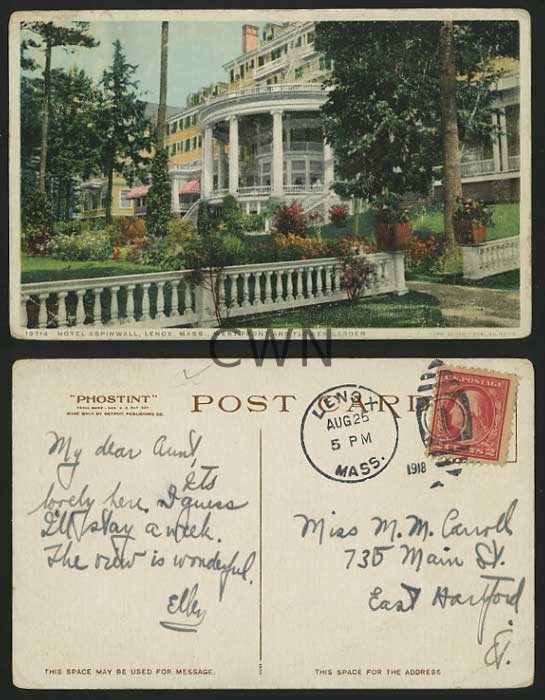 13714 HOTEL ASPINWALL, LENOX, MASS., WEST FRONT AND FLOWER GARDEN
CWN
"PHOSTINT"
TRADE MARK
MADE ONLY BY DETROIT PUBLISHING CO.
POST CARD
LENOX
AUG 25
5 PM
MASS.
1918
U.S. POSTAGE
CENTS 2
My dear Aunt,
Its
lovely here. I guess
I'll stay a week.
The view is wonderful.
Miss M. M. Carroll
735 Main St.
East Hartford.
Ct.
THIS SPACE MAY BE USED FOR MESSAGE.
THIS SPACE FOR THE ADDRESS